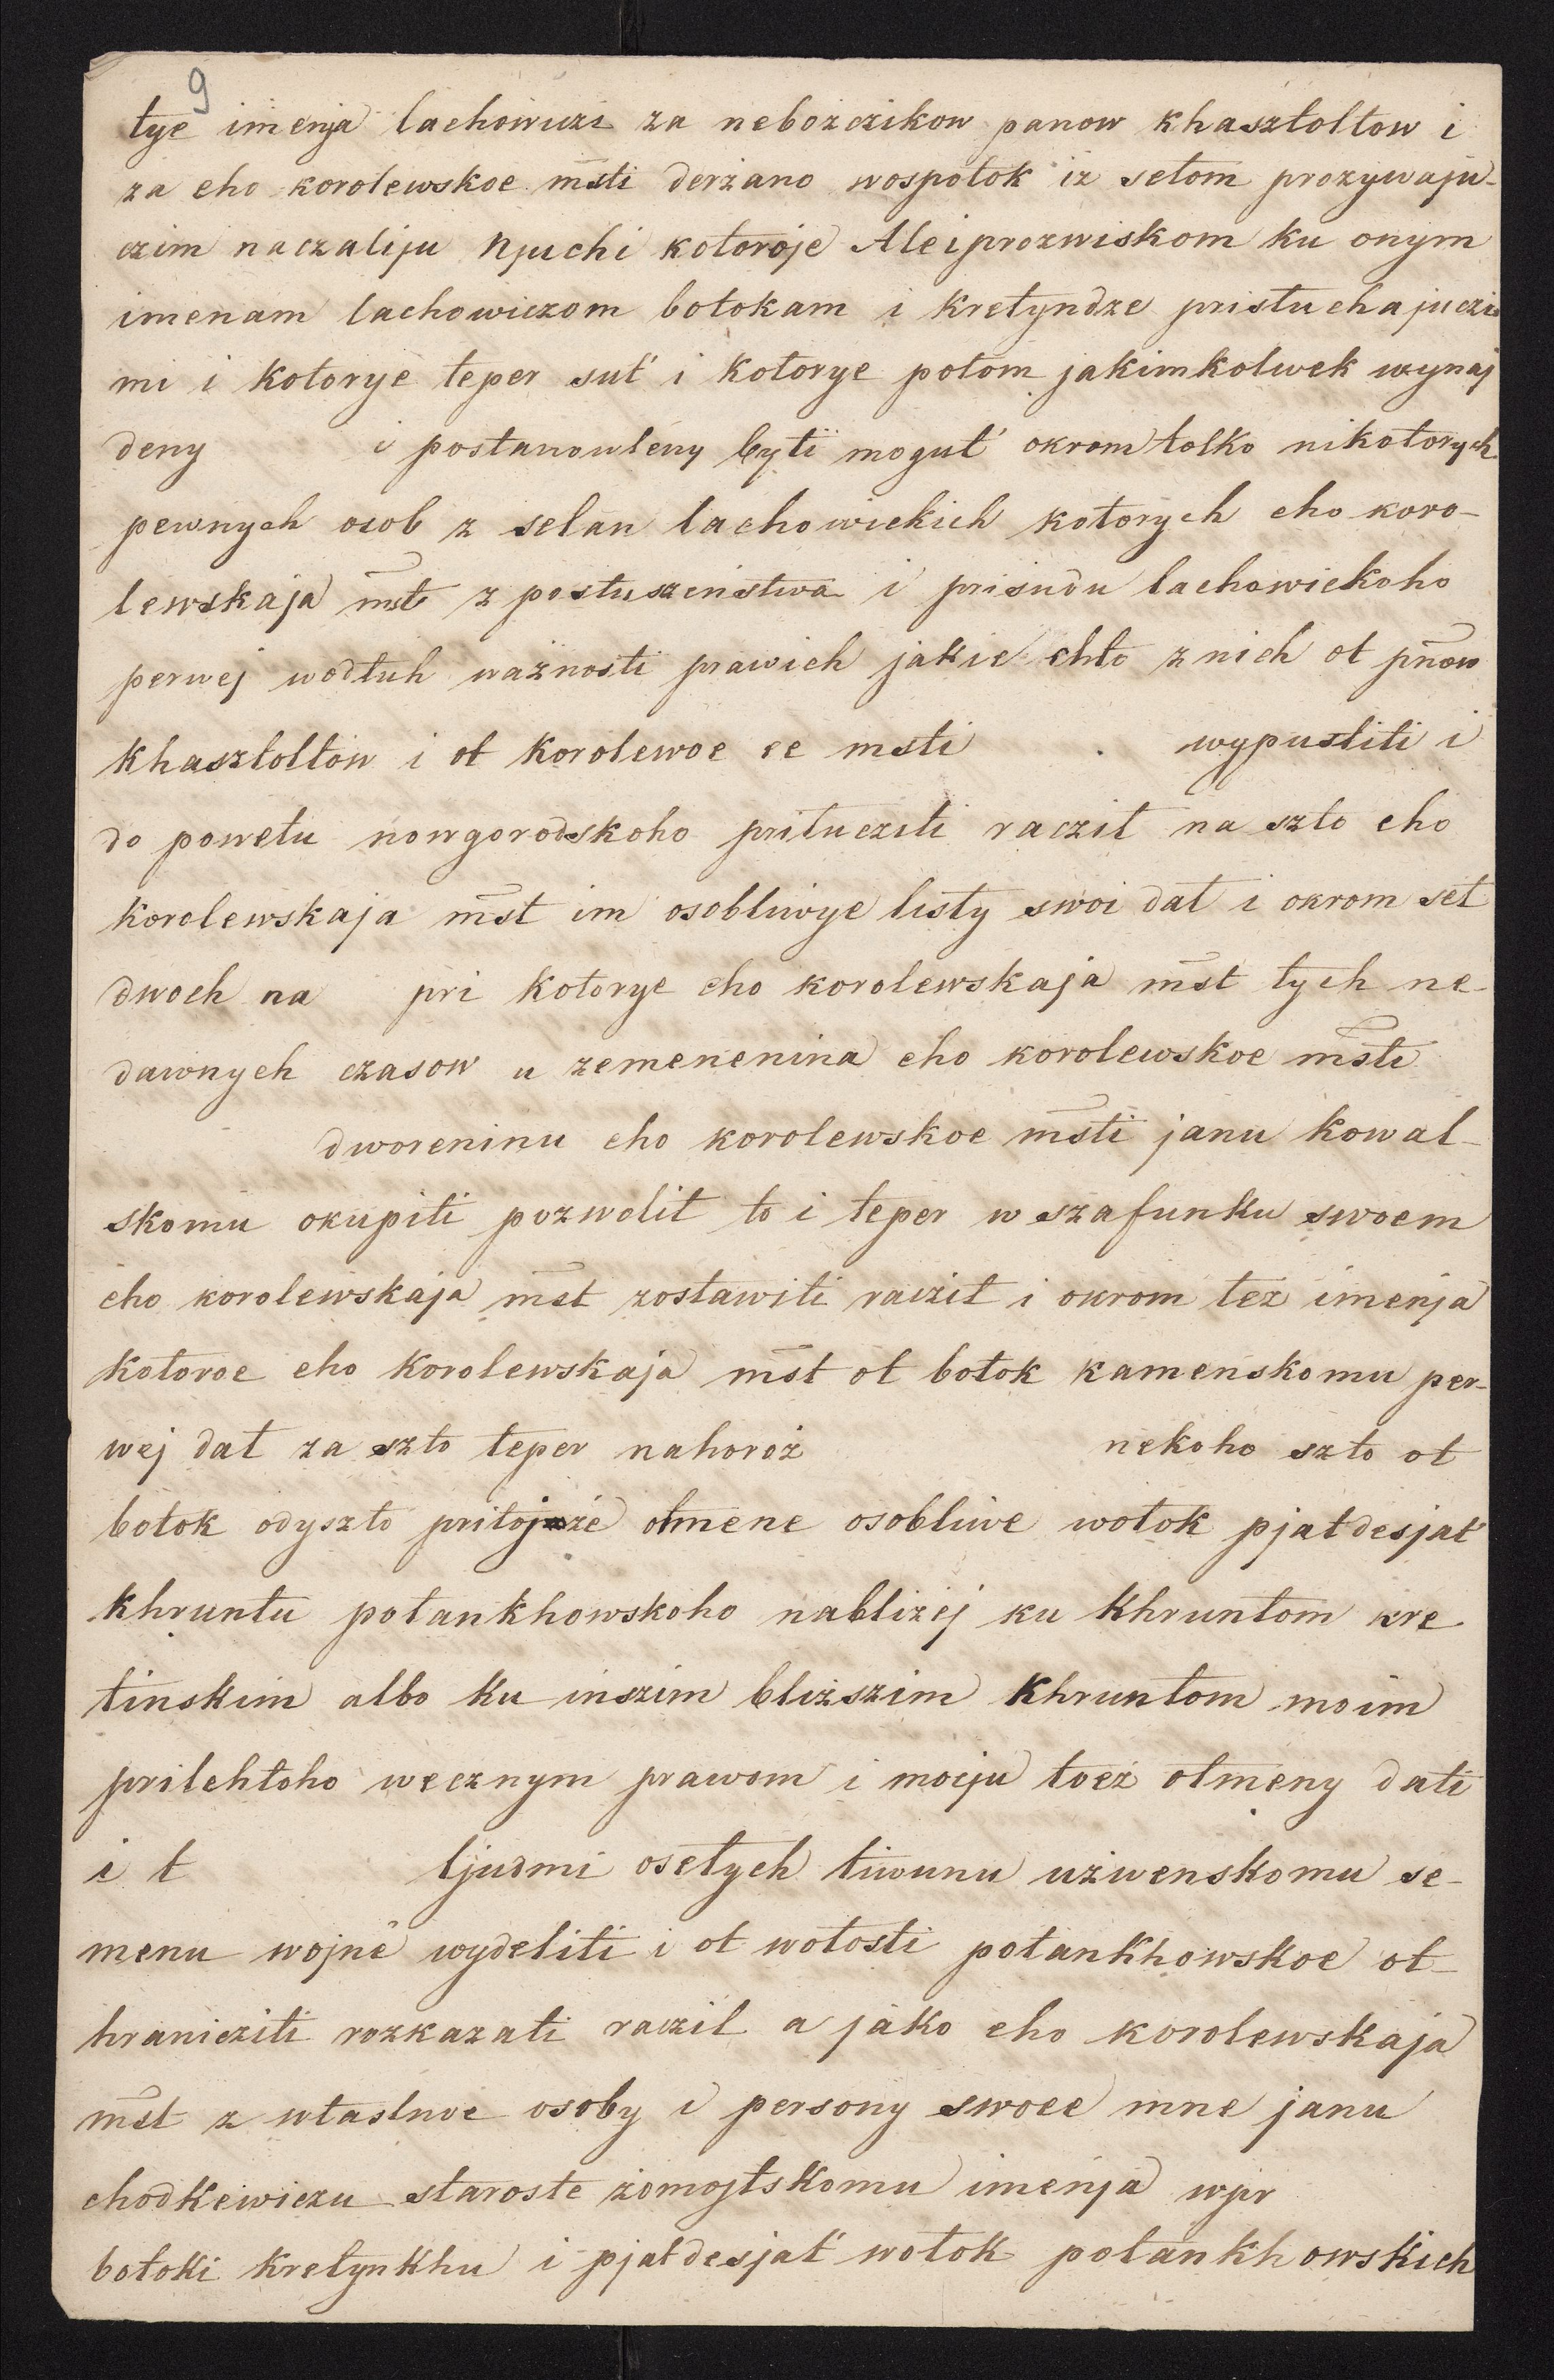 9
tye imenja lachowiczi za nebożczikow panow khasztoltow i
za eho korolewskoe msti derżano wospołok iz sełom prozywaju-
czim naczaliju Njuchi kotoroje Aleiprozwiskom ku onym
imenam lachowiczom bołokam i kretyndze pristuchajuczi
mi i kotorye teper sut' i kotorye potom jakimkolwek wynaj
deny i postanowleny byti mogut' okrom tolko nikotorych
pewnych osob z selan lachowickich kotorych eho koro-
lewskaja mst z posłuszenstwa i prisudu lachowickoho
perwej wodłuh ważnosti prawich jakie chto z nich ot pnow
khasztoltow i ot korolewoe ee msti . wypustiti i
do powetu nowgorodskoho priłucziti racził na szto eho
korolewskaja mst im osobliwye listy swoi dał i okrom seł
dwoch na pri kotorye eho korolewskaja mst tych ne-
dawnych czasow u zemenenina eho korolewskoe msti
dworeninu eho korolewskoe msti janu kowal-
skomu okupiti pozwolił to i teper w szafunku swoem
eho korolewskaja mst zostawiti racził i okrom tez imenja
kotoroe eho korolewskaja mst ot bołok kamenskomu per-
wej dał za szto teper nahoroż nekoho szto ot
bołok odyszło pritojże otmene osobliwe wołok pjatdesjat'
khruntu połankhowskoho nabliżej ku khruntom kre
tinskim albo ku inszim bliższim khruntom moim
prilehłoho wecznym prawom i mocju toeż otmeny dati
i t ljudmi osełych tiwunu użwenskomu se-
menu wojne wydeliti i ot wołosti połankhowskoe ot-
hranicziti rozkazati raczil a jako eho korolewskaja
mst z własnoe osoby i persony swoee mne janu
chodkewiczu staroste żomojtskomu imenja wpr
bołoki kretynkhu i pjatdesjat' wołok połankhowskich